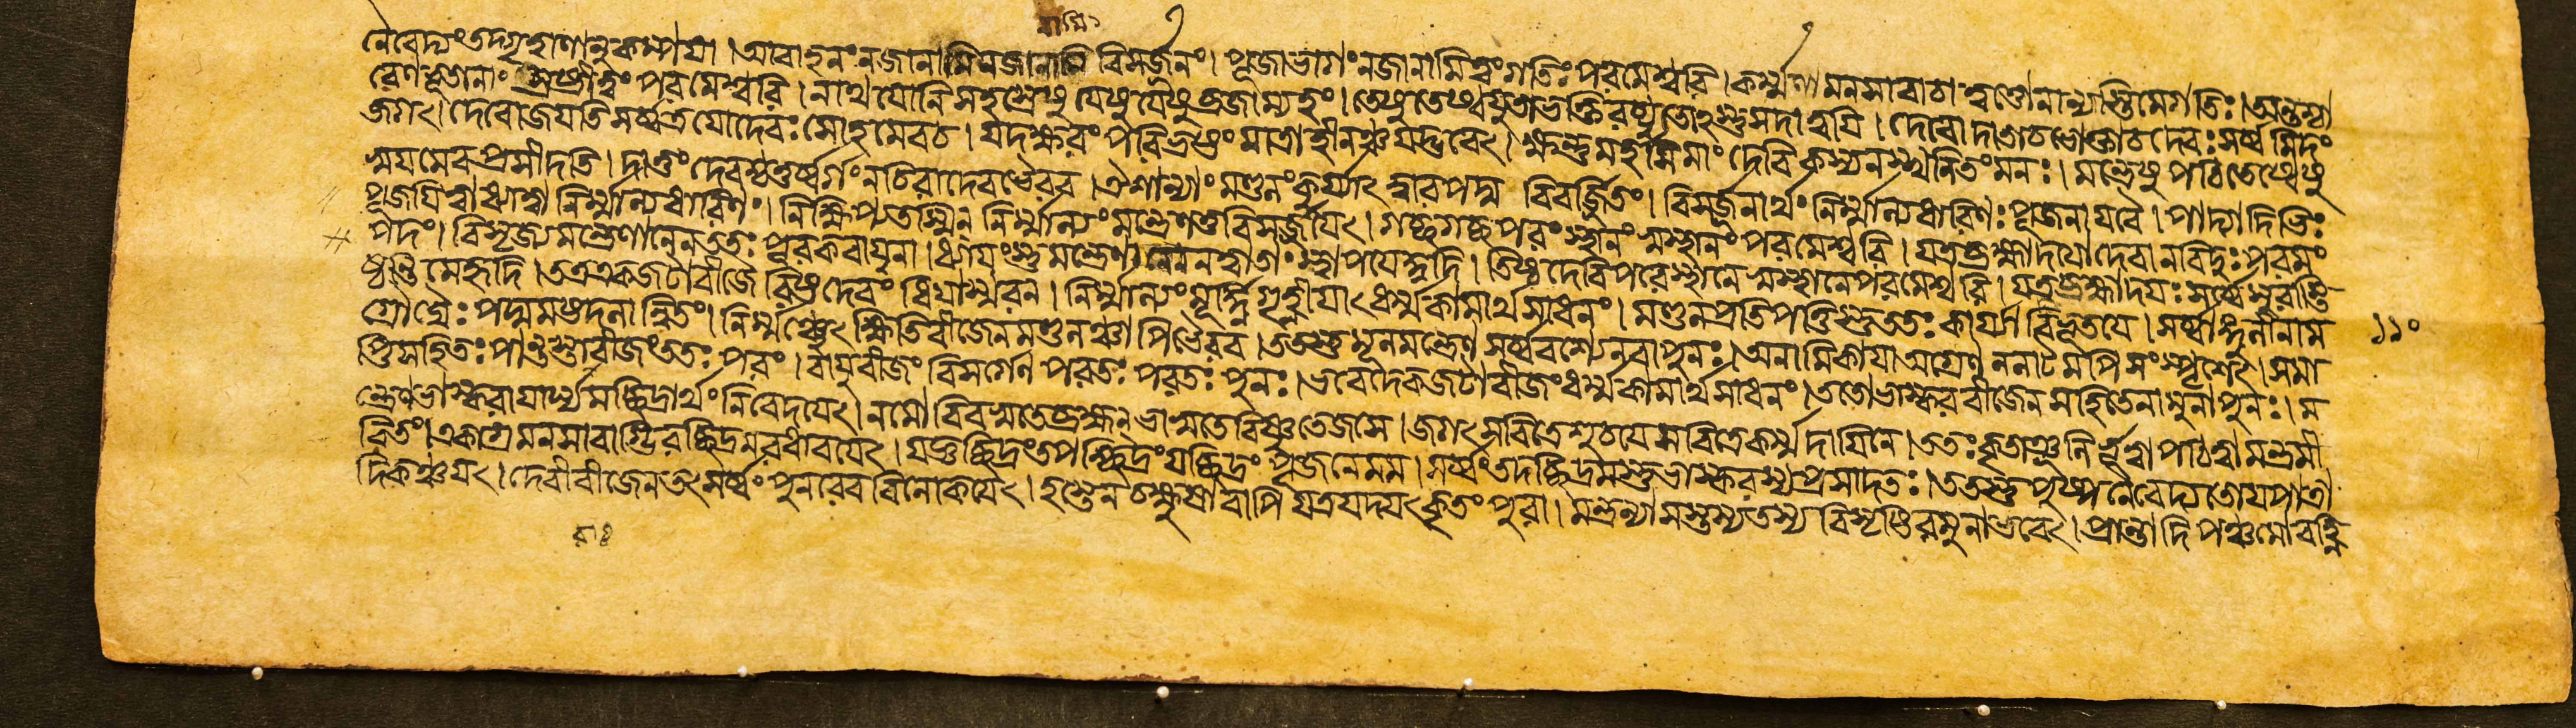 নামি
নৈবেদ্যং তদ্গৃহাণানুকম্পয়া । আবাহনং নজানামি নজানামি বিসর্জ্জনং । পূজাভাগং নজানামি ত্বং গতিঃ পরমেশ্বরি । কর্ম্মণা মনসা বাচা ত্বত্তো নান্যাস্তি মে গতিঃ । অন্তশ্চ
রেণ ভূতানাং পরমেশ্বরি । নাথ যোনিসহস্রেষু যেষু যেষু ব্রজাম্যহং । তেষু তেষ্বচ্যুতা ভক্তিরচ্যুতেঽস্তু সদা ত্বয়ি । দেবো দাতা চ ভোক্তা চ দেবঃ সর্ব্বমিদং
জগৎ । দেবো জয়তি সর্ব্বত্র যো দেবঃ সোহমেব চ । যদক্ষরং পরিভ্রষ্টং মাত্রাহীনঞ্চ যদ্ভবেৎ । ক্ষন্তুমর্হসি মাং দেবি কস্য ন স্খলিতং মনঃ । মন্ত্রেষু পঠিতেষ্বেষু
স্বয়মেব প্রসীদতি । দাতুং দেবশ্চতুর্ব্বর্গং নচিরাদেব ভৈরব । ঐশান্যাং মণ্ডলং কুর্য্যাৎ দ্বারপদ্ম বিবর্জ্জিতং । বিসর্জ্জনার্থং নির্ম্মাল্যধারিণঃ পূজনায় বৈ । পাদ্যাদিভিঃ
পূজয়িত্বা ধ্যাত্বা নির্ম্মাল্যধারিণং । নিক্ষিপ্য তস্মিন্ নির্ম্মাল্যং মন্ত্রেণ তু বিসর্জ্জয়েৎ । গচ্ছ গচ্ছ পরং স্থানং স্বস্থানং পরমেশ্বরি । যত্র ব্রহ্মাদয়ো দেবা ন বিদুঃ পরমং
পদং । বিসৃজ্য মন্ত্রেণানেন ততঃ পূরকবায়ুনা । মন্ত্রেণ স্থাপয়েদ্ধৃদি । তিষ্ঠ দেবি পরে স্থানে স্বস্থানে পরমেশ্বরি । যত্র ব্রহ্মাদয়ঃ সর্ব্বে সুরাস্তি
ষ্ঠন্তি মে হৃদি । তত একজটাবীজৈ দেবং ধিয়া স্মরন্ । নির্ম্মাল্যং মূর্দ্ধ্নি গৃহ্ণীয়াৎ ধর্ম্মকামার্থসাধনং । মণ্ডলপ্রতিপত্তিস্তু ততঃ কার্য্যা বিভূতয়ে । সর্ব্বাঙ্গুলীনাম
পদ্মমষ্টদলান্বিতং । ক্ষিতিবীজেন মণ্ডলঞ্চাপি ভৈরব । ততস্তু মূলমন্ত্রেণ সর্ব্ববশ্যেন বা পুনঃ । অনামিকায়া অগ্রেণ ললাটমপি সংস্পৃশেৎ । সমা
১১০
প্তিসহিতঃ বীজং ততঃ পরং । বায়ুবীজং বিসর্গেণ পরতঃ পরতঃ পুনঃ । ভবেদেকজটাবীজং ধর্ম্মকামার্থসাধনং । ততো ভাস্করবীজেন সহিতেনামুনা পুনঃ । ম
ন্ত্রেণ ভাস্করায়ার্ঘ্যমচ্ছিদ্রার্থং নিবেদয়েৎ । নমো বিবস্বতে ব্রহ্মন্ ভাস্বতে বিষ্ণুতেজসে । জগৎসবিত্রে শুচয়ে সবিত্রে কর্ম্মদায়িনে । ততঃ কৃতাঞ্জলির্ভূত্বা পঠিত্বা মন্ত্রমী
রিতং । একাগ্রমনসা বাগ্ভিরচ্ছিদ্রমবধারয়েৎ । যজ্ঞচ্ছিদ্রং তপশ্ছিদ্রং যচ্ছিদ্রং পূজনে মম । সর্ব্বং তদচ্ছিদ্রমস্তু ভাস্করস্য প্রসাদতঃ । ততস্তু পুষ্পনৈবেদ্যতোয়পাত্রা
দিকঞ্চ যৎ । দেবীবীজেন তৎ সর্ব্বং পুনরেব বিলোকয়েৎ । হস্তেন চক্ষুষা বাপি যত্র যদ্যৎ কৃতং পুরা । মন্ত্রন্যাসস্তস্য তস্য বিসৃষ্টিরমুনা ভবেৎ । প্রান্তাদি পঞ্চমো বহ্নি